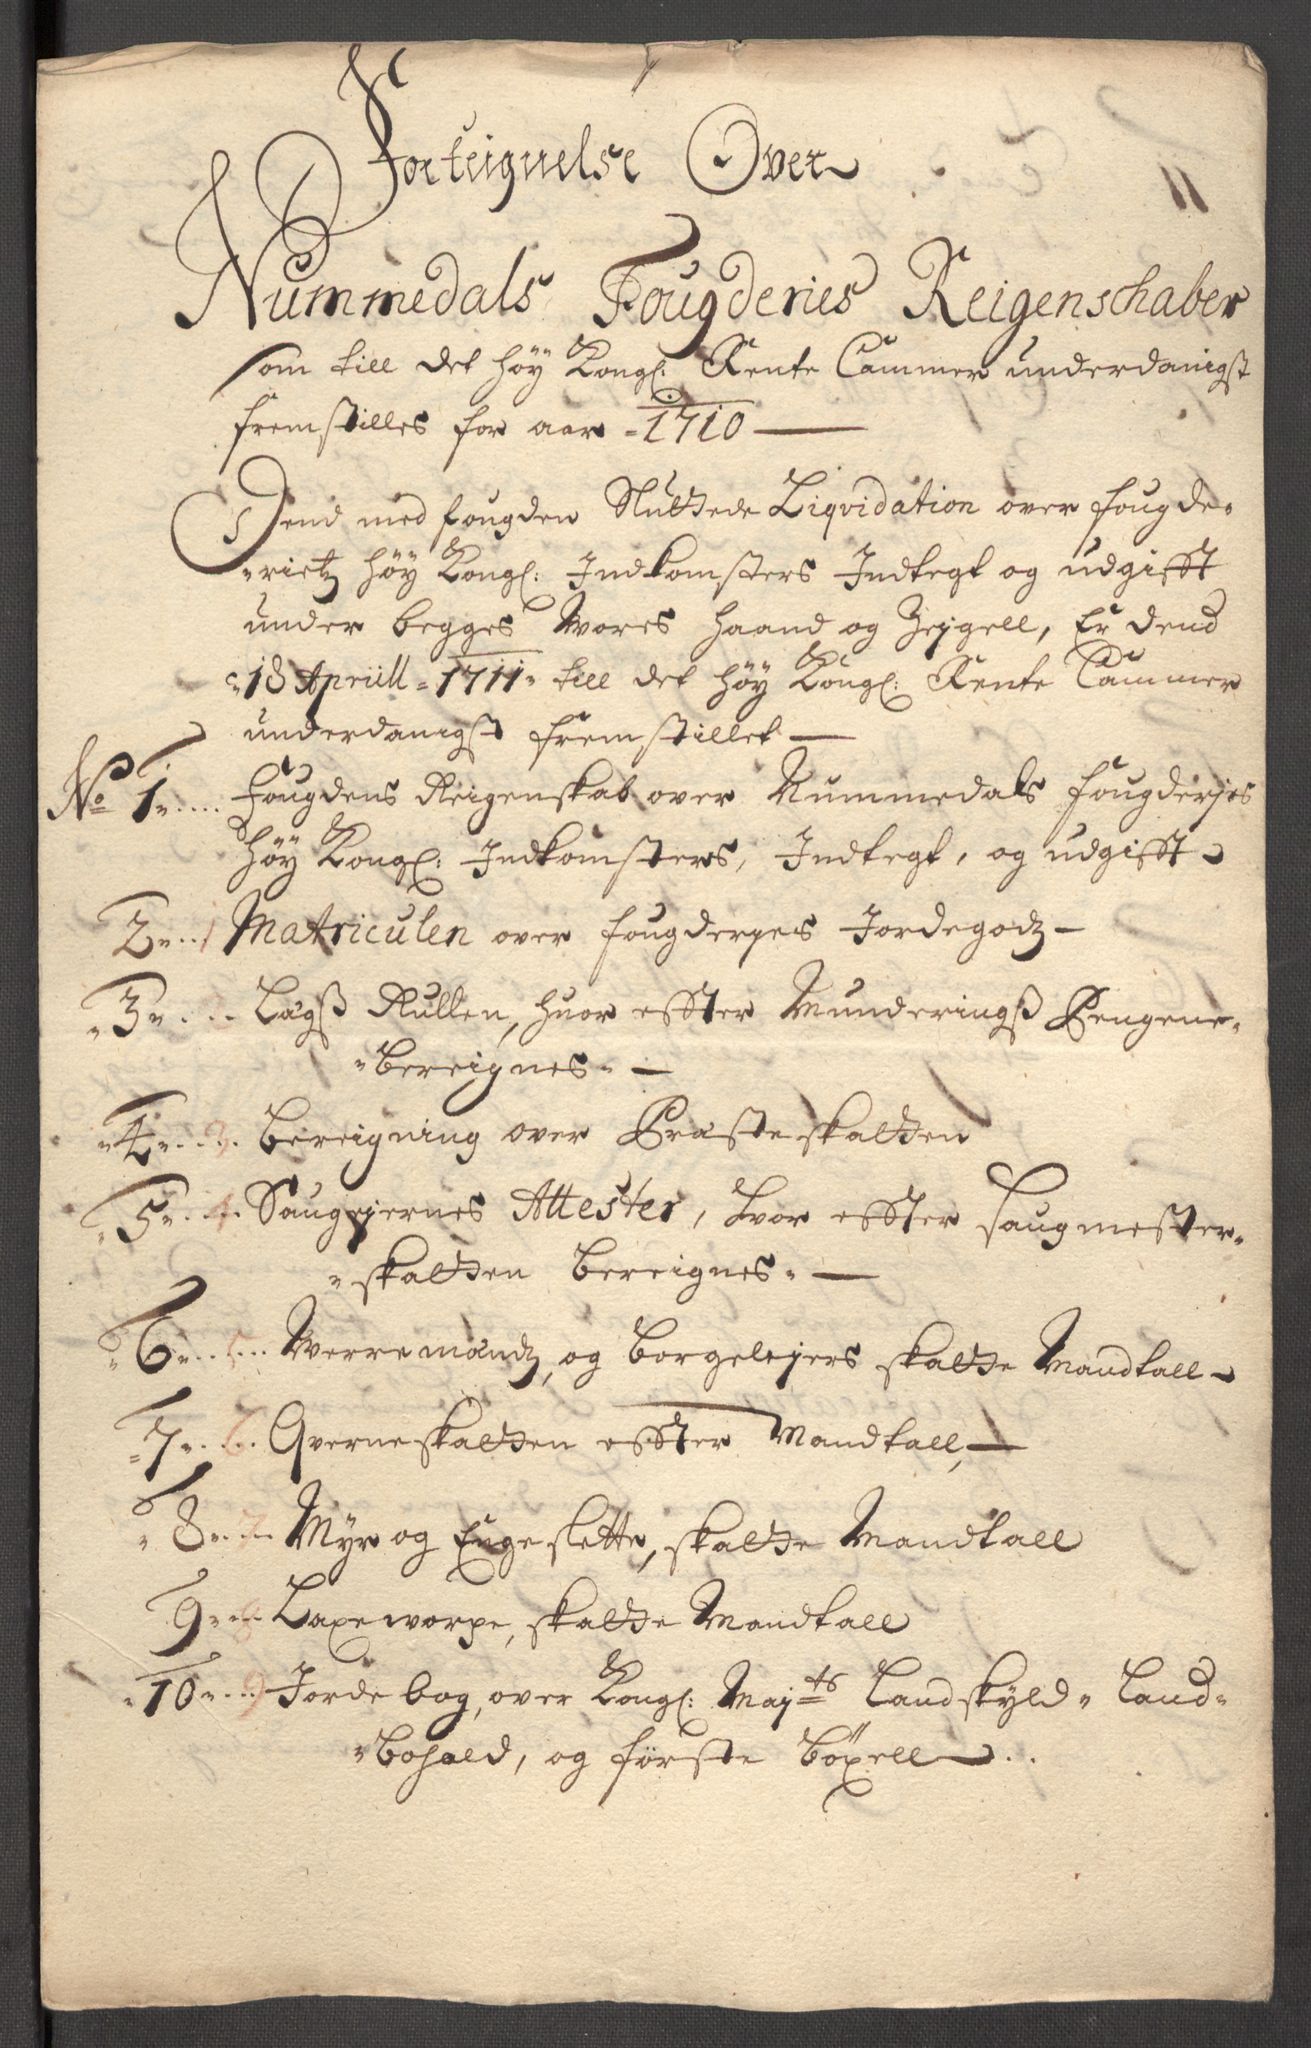 Forteignelse Over
Nummedals Fougderies Reigenschaber
som till det høy Kongl: Rente Cammer underdanigst
fremstilles for aar 1710
Dend med fougden Sluttede Liqvidation over fougde-
rietz høy Kongl: Indkomsters Indtegt og udgifft
under begges wores haand og Zeigell, Er dend
18 Apriill 1711 till det høy Kongl: Rente Cammer
underdanigst fremstillet
No 1 Fougdens Reigenskab over Nummedals fougderjes
høy Kongl: Indkomsters, Indtegt, og udgifft
2 1 Matriculen over fougderjes Jordegodz
3 2 Lægß Rullen, huor effter Munderingß Pengene
bereignes
4 3 Bereigning over Præsteskatten
5 4 Saugejernes Attester, hvor effter Saugmester
skatten bereignes
6 5 Werremandz, og borgelejers skatte Mandtall
7 6 Qverneskatten effter Mandtall,
8 7 Myr og Engeslette, skatte Mandtall
9 8 Laxeworpe, skatte Mandtall
10 9 Jordebog, over Kongl: Majts Landskyld Land-
bohold, og förste böxell